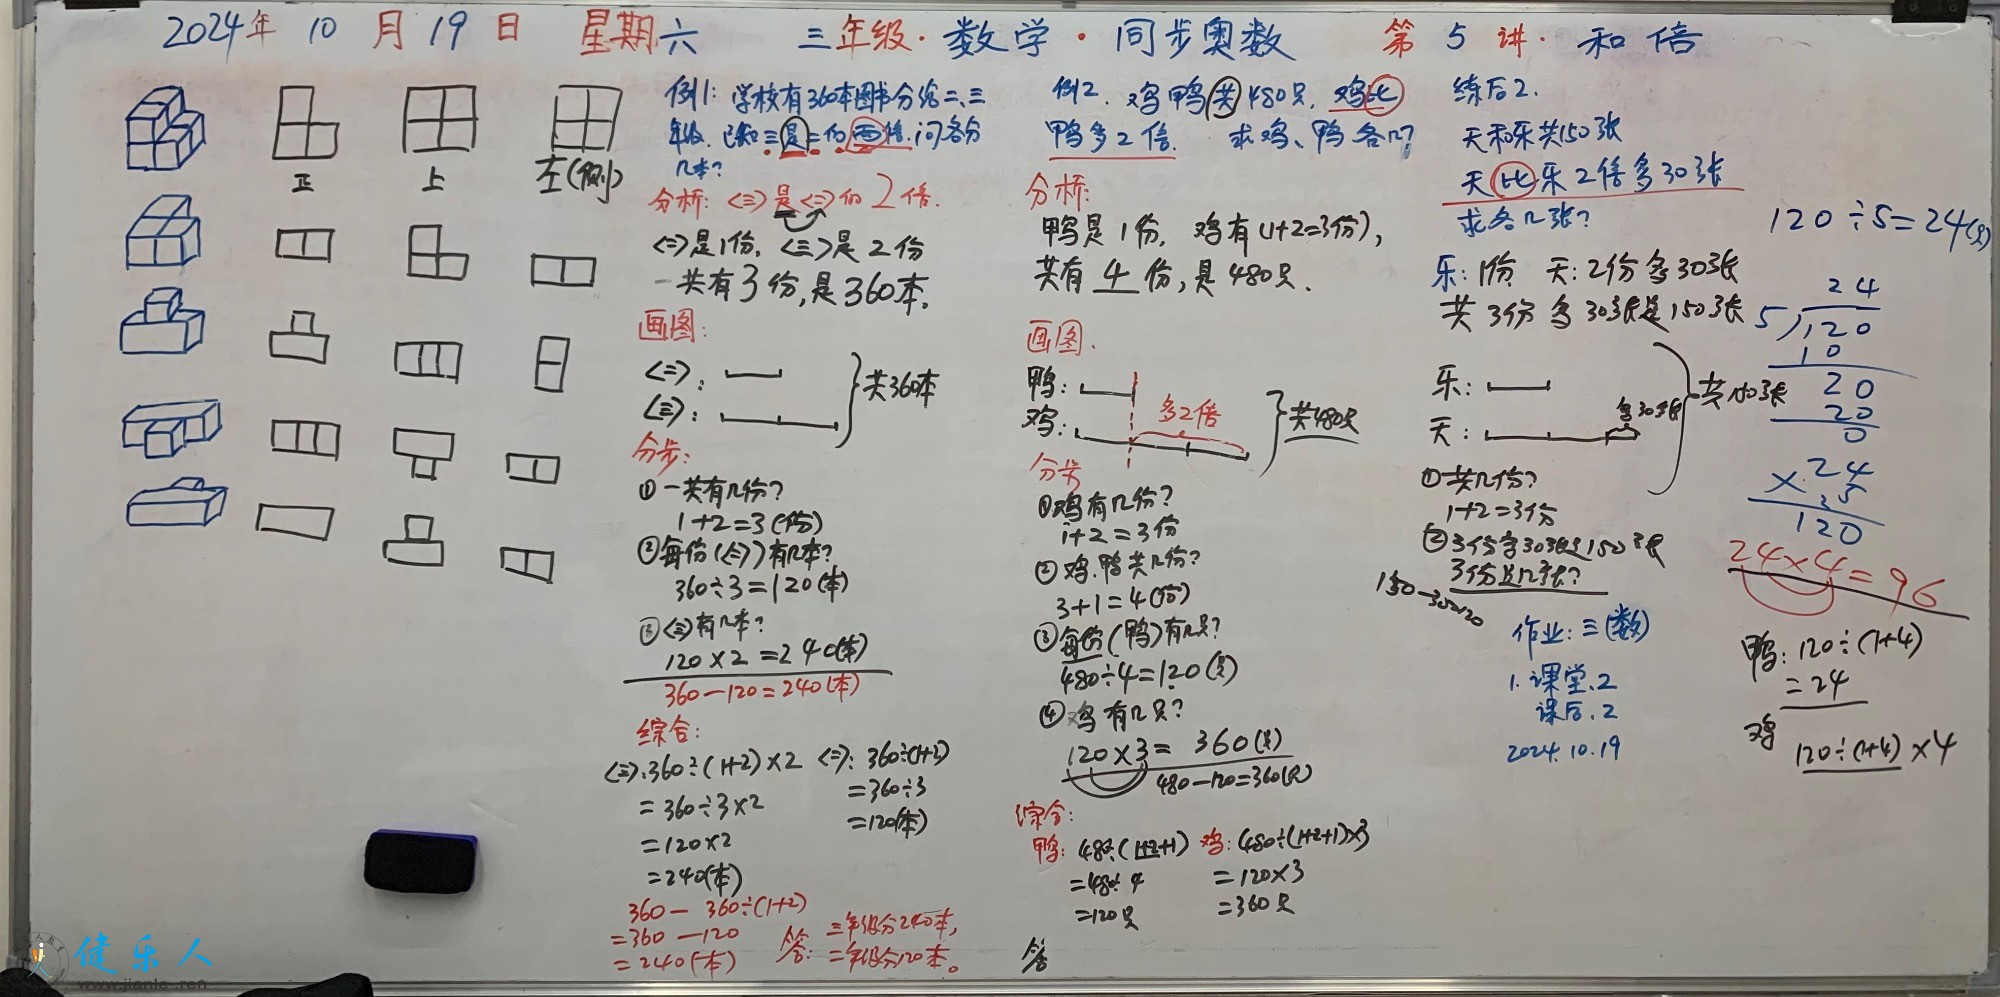 2024年 10 月 19 日 星期六 三年级·数学·同步奥数 第 5 讲·和倍
正 上 左(侧)
例1: 学校有360本图书分给二、三
年级. 已知三是二的两倍.问各分
几本?
分析:<三>是<二>的2倍.
<二>是1份, <三>是2份
一共有3份,是360本。
画图:
<二>:
<三>:
共360本
分步:
①一共有几份?
1+2=3(份)
②每份(<二>)有几本?
360÷3=120(本)
③<三>有几本?
120×2=240(本)
360-120=240(本)
综合:
<三>:360÷(1+2)×2 <二>: 360÷(1+2)
=360÷3×2 =360÷3
=120×2 =120(本)
=240(本)
360-360÷(1+2)
=360-120
=240(本)
答: 三年级分240本,
二年级分120本。
例2. 鸡鸭共480只, 鸡比
鸭多2倍. 求鸡、鸭各几?
分析:
鸭是1份, 鸡有(1+2=3份),
共有 4 份,是480只.
画图.
鸭:
鸡:
多2倍
共480只
分步
①鸡有几份?
1+2=3份
②鸡.鸭共几份?
3+1=4(份)
③每份(鸭)有几只?
480÷4=120(只)
④鸡有几只?
120×3= 360(只)
480-120=360(只)
综合:
鸭: 480÷(1+2+1) 鸡: (480÷(1+2+1)×3
=480÷4 =120×3
=120只 =360只
答
练后2.
天和乐共150张
天比乐2倍多30张
求各几张?
乐:1份 天:2份多30张
共3份多30张是150张
乐:
天:
多30张
共150张
①共几份?
1+2=3份
②3份多30张是150张
3份是几张?
150-30=120
作业:三(数)
1.课堂.2
课后.2
2024.10.19
120÷5=24(只)
24
5)120
10
20
20
0
24
×5
120
24×4=96
鸭: 120÷(1+4)
=24
鸡
120÷(1+4)×4
健乐人